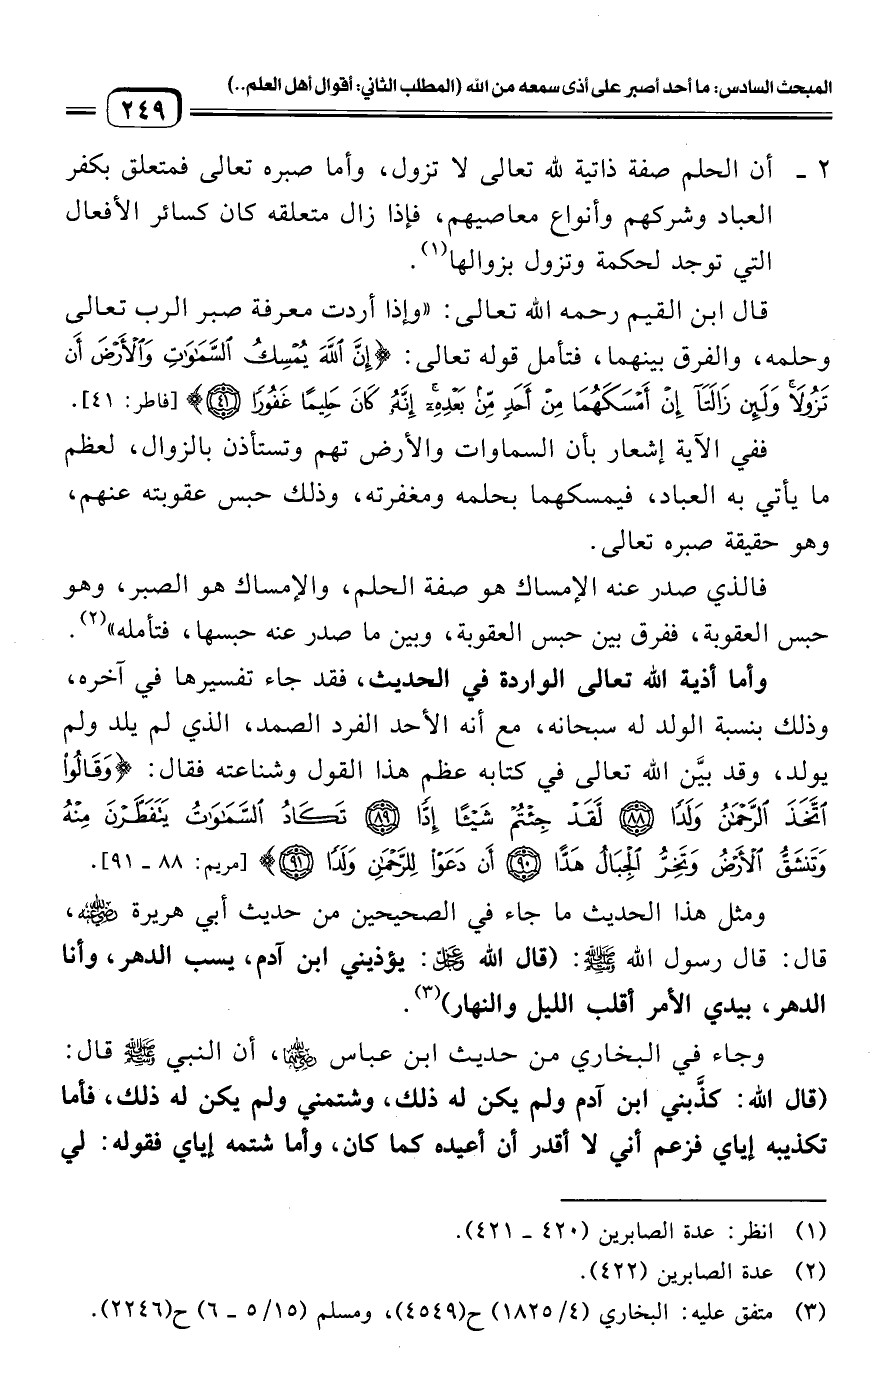 المبحث السادس: ما أحد أصبر على أذى سمعه من الله (المطلب الثاني: أقوال أهل العلم..)
٢٤٩
٢ ـ أن الحلم صفة ذاتية لله تعالى لا تزول، وأما صبره تعالى فمتعلق بكفر
العباد وشركهم وأنواع معاصيهم، فإذا زال متعلقه كان كسائر الأفعال
التي توجد لحكمة وتزول بزوالها(١).
قال ابن القيم رحمه الله تعالى: «وإذا أردت معرفة صبر الرب تعالى
وحلمه، والفرق بينهما، فتأمل قوله تعالى: ﴿إِنَّ ٱللَّهَ يُمْسِكُ ٱلسَّمَٰوَٰتِ وَٱلْأَرْضَ أَن
تَزُولَا ۚ وَلَئِن زَالَتَآ إِنْ أَمْسَكَهُمَا مِنْ أَحَدٍ مِّنۢ بَعْدِهِۦٓ ۚ إِنَّهُۥ كَانَ حَلِيمًا غَفُورًا ﴿٤١﴾﴾ [فاطر: ٤١].
ففي الآية إشعار بأن السماوات والأرض تهم وتستأذن بالزوال، لعظم
ما يأتي به العباد، فيمسكهما بحلمه ومغفرته، وذلك حبس عقوبته عنهم،
وهو حقيقة صبره تعالى.
فالذي صدر عنه الإمساك هو صفة الحلم، والإمساك هو الصبر، وهو
حبس العقوبة، ففرق بين حبس العقوبة، وبين ما صدر عنه حبسها، فتأمله»(٢).
وأما أذية الله تعالى الواردة في الحديث، فقد جاء تفسيرها في آخره،
وذلك بنسبة الولد له سبحانه، مع أنه الأحد الفرد الصمد، الذي لم يلد ولم
يولد، وقد بيَّن الله تعالى في كتابه عظم هذا القول وشناعته فقال: ﴿وَقَالُوا۟
ٱتَّخَذَ ٱلرَّحْمَٰنُ وَلَدًا ﴿٨٨﴾ لَّقَدْ جِئْتُمْ شَيْـًٔا إِدًّا ﴿٨٩﴾ تَكَادُ ٱلسَّمَٰوَٰتُ يَتَفَطَّرْنَ مِنْهُ
وَتَنشَقُّ ٱلْأَرْضُ وَتَخِرُّ ٱلْجِبَالُ هَدًّا ﴿٩٠﴾ أَن دَعَوْا۟ لِلرَّحْمَٰنِ وَلَدًا ﴿٩١﴾﴾ [مريم: ٨٨ ـ ٩١].
ومثل هذا الحديث ما جاء في الصحيحين من حديث أبي هريرة رضي الله عنه،
قال: قال رسول الله ﷺ: (قال الله عز وجل: يؤذيني ابن آدم، يسب الدهر، وأنا
الدهر، بيدي الأمر أقلب الليل والنهار)(٣).
وجاء في البخاري من حديث ابن عباس رضي الله عنهما، أن النبي ﷺ قال:
(قال الله: كذَّبني ابن آدم ولم يكن له ذلك، وشتمني ولم يكن له ذلك، فأما
تكذيبه إياي فزعم أني لا أقدر أن أعيده كما كان، وأما شتمه إياي فقوله: لي
(١) انظر: عدة الصابرين (٤٢٠ ـ ٤٢١).
(٢) عدة الصابرين (٤٢٢).
(٣) متفق عليه: البخاري (٤/ ١٨٢٥) ح(٤٥٤٩)، ومسلم (١٥/ ٥ ـ ٦) ح(٢٢٤٦).